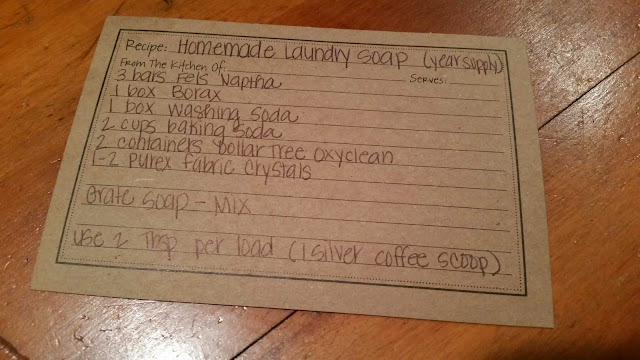 Recipe: Homemade Laundry Soap (year supply)
From The Kitchen Of: Serves:
3 bars Fels Naptha
1 box Borax
1 box washing soda
2 cups baking soda
2 containers Dollar Tree oxyclean
1-2 Purex fabric crystals
Grate soap - Mix
Use 2 Tbsp per load (1 silver coffee scoop)